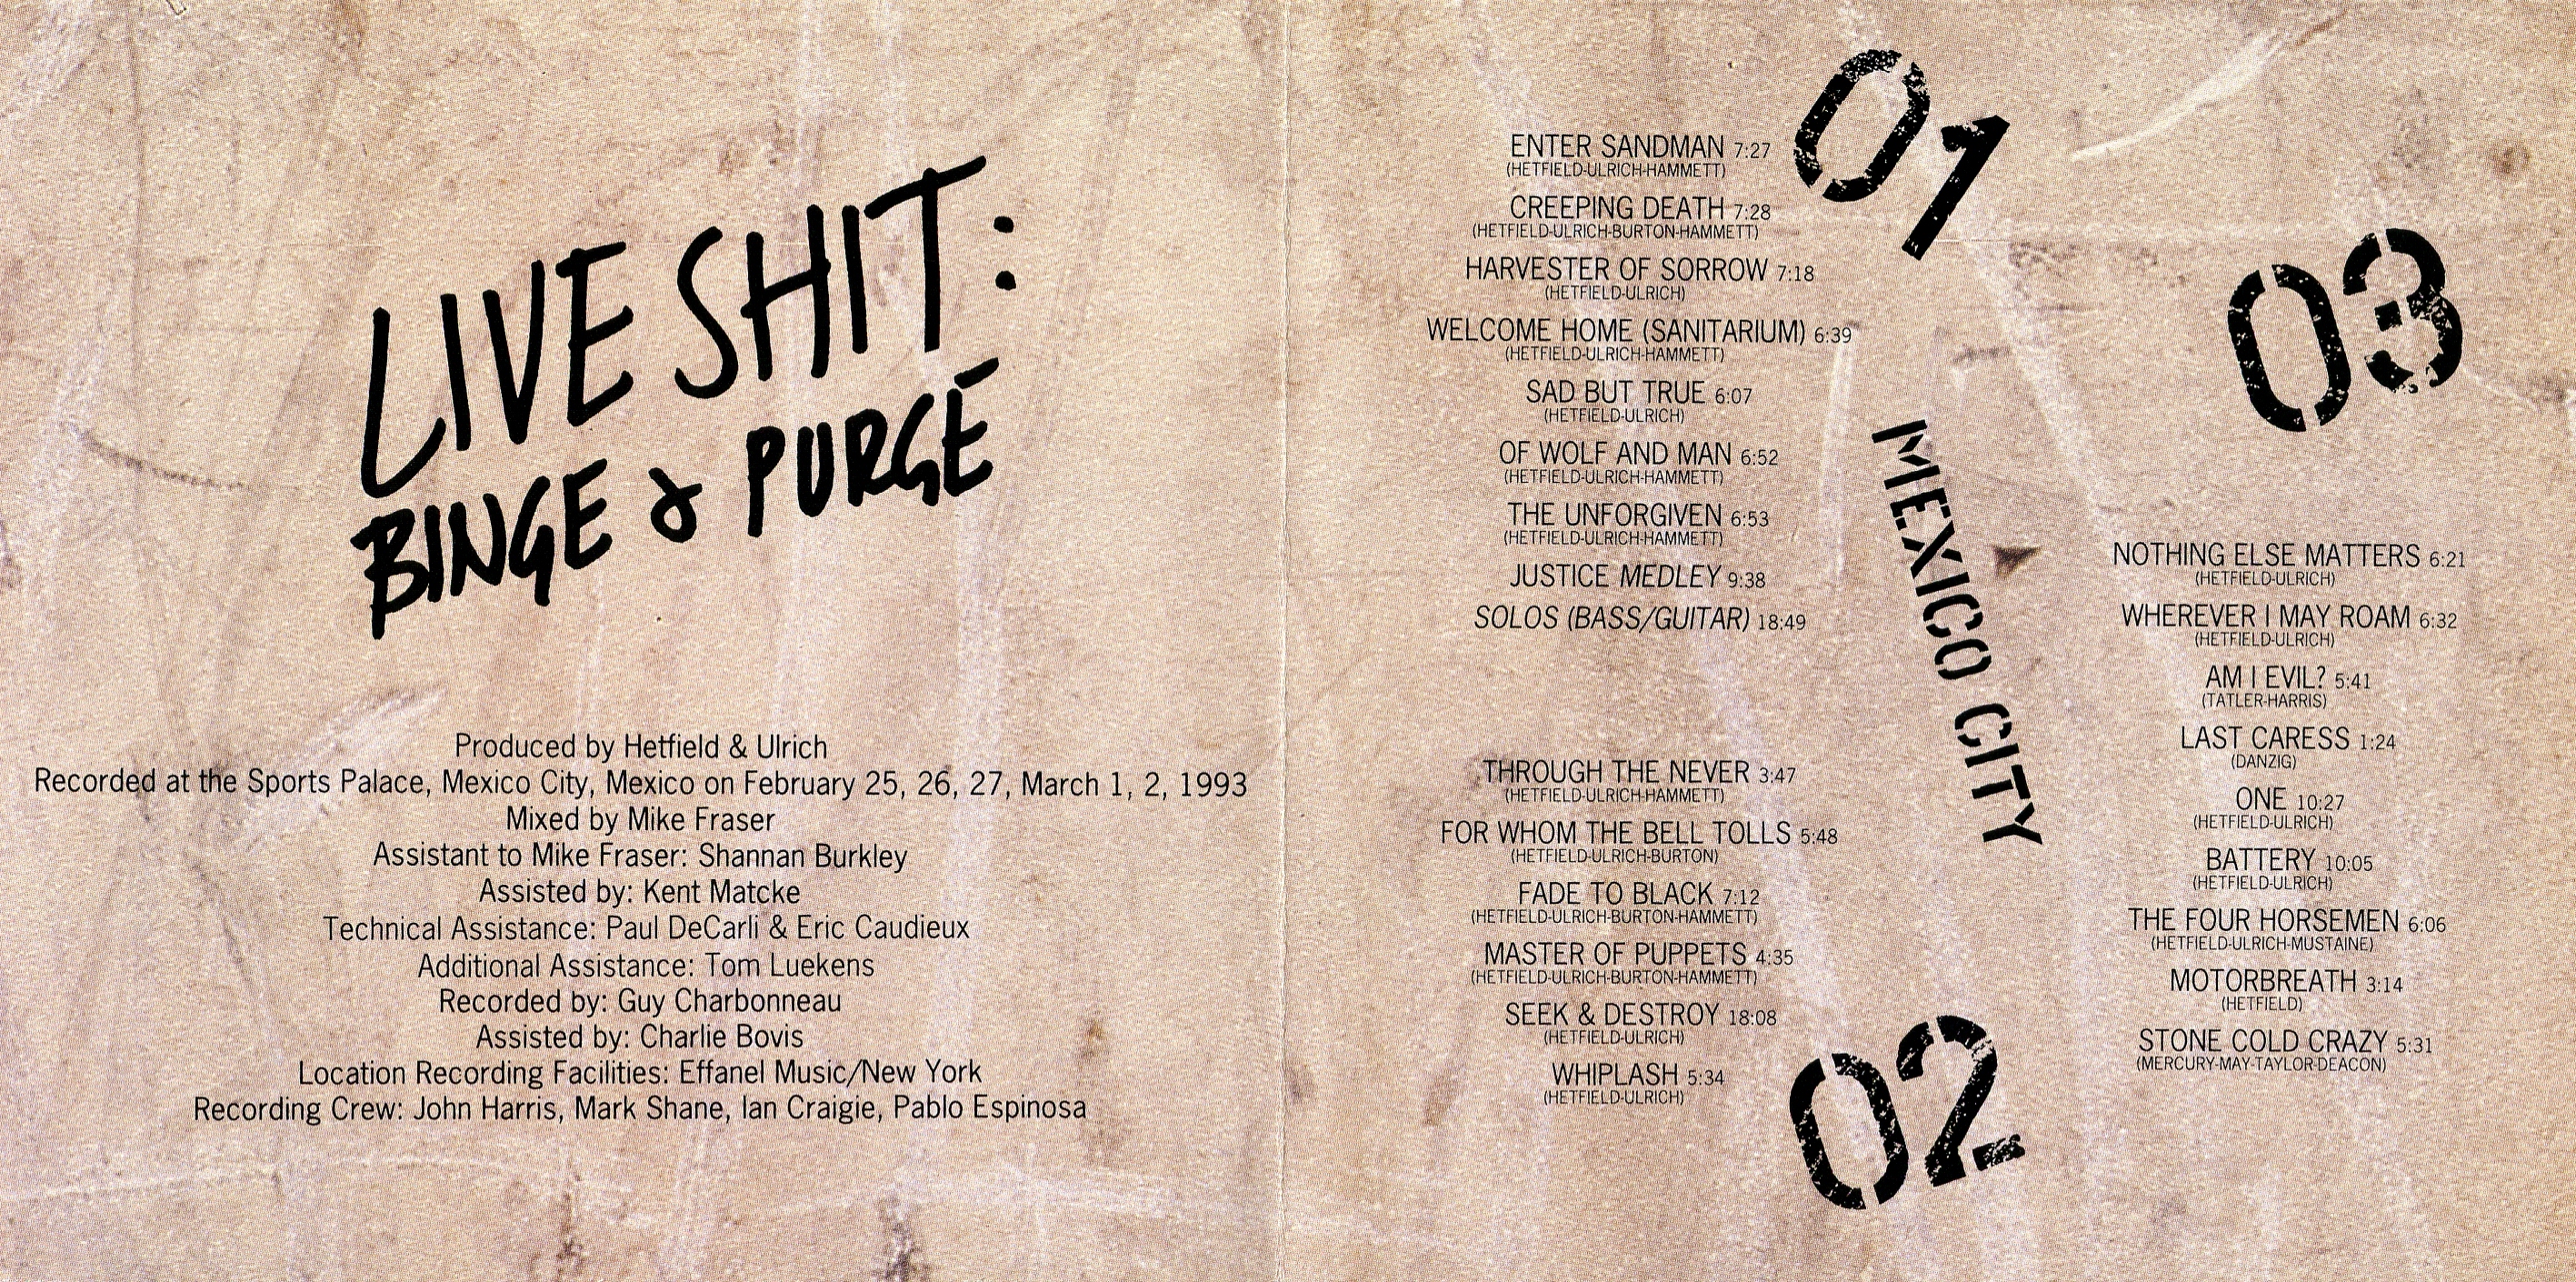 LIVE SHIT:
BINGE & PURGE
Produced by Hetfield & Ulrich
Recorded at the Sports Palace, Mexico City, Mexico on February 25, 26, 27, March 1, 2, 1993
Mixed by Mike Fraser
Assistant to Mike Fraser: Shannan Burkley
Assisted by: Kent Matcke
Technical Assistance: Paul DeCarli & Eric Caudieux
Additional Assistance: Tom Luekens
Recorded by: Guy Charbonneau
Assisted by: Charlie Bovis
Location Recording Facilities: Effanel Music/New York
Recording Crew: John Harris, Mark Shane, Ian Craigie, Pablo Espinosa
01
ENTER SANDMAN 7:27
(HETFIELD-ULRICH-HAMMETT)
CREEPING DEATH 7:28
(HETFIELD-ULRICH-BURTON-HAMMETT)
HARVESTER OF SORROW 7:18
(HETFIELD-ULRICH)
WELCOME HOME (SANITARIUM) 6:39
(HETFIELD-ULRICH-HAMMETT)
SAD BUT TRUE 6:07
(HETFIELD-ULRICH)
OF WOLF AND MAN 6:52
(HETFIELD-ULRICH-HAMMETT)
THE UNFORGIVEN 6:53
(HETFIELD-ULRICH-HAMMETT)
JUSTICE MEDLEY 9:38
SOLOS (BASS/GUITAR) 18:49
MEXICO CITY
02
THROUGH THE NEVER 3:47
(HETFIELD-ULRICH-HAMMETT)
FOR WHOM THE BELL TOLLS 5:48
(HETFIELD-ULRICH-BURTON)
FADE TO BLACK 7:12
(HETFIELD-ULRICH-BURTON-HAMMETT)
MASTER OF PUPPETS 4:35
(HETFIELD-ULRICH-BURTON-HAMMETT)
SEEK & DESTROY 18:08
(HETFIELD-ULRICH)
WHIPLASH 5:34
(HETFIELD-ULRICH)
03
NOTHING ELSE MATTERS 6:21
(HETFIELD-ULRICH)
WHEREVER I MAY ROAM 6:32
(HETFIELD-ULRICH)
AM I EVIL? 5:41
(TATLER-HARRIS)
LAST CARESS 1:24
(DANZIG)
ONE 10:27
(HETFIELD-ULRICH)
BATTERY 10:05
(HETFIELD-ULRICH)
THE FOUR HORSEMEN 6:06
(HETFIELD-ULRICH-MUSTAINE)
MOTORBREATH 3:14
(HETFIELD)
STONE COLD CRAZY 5:31
(MERCURY-MAY-TAYLOR-DEACON)